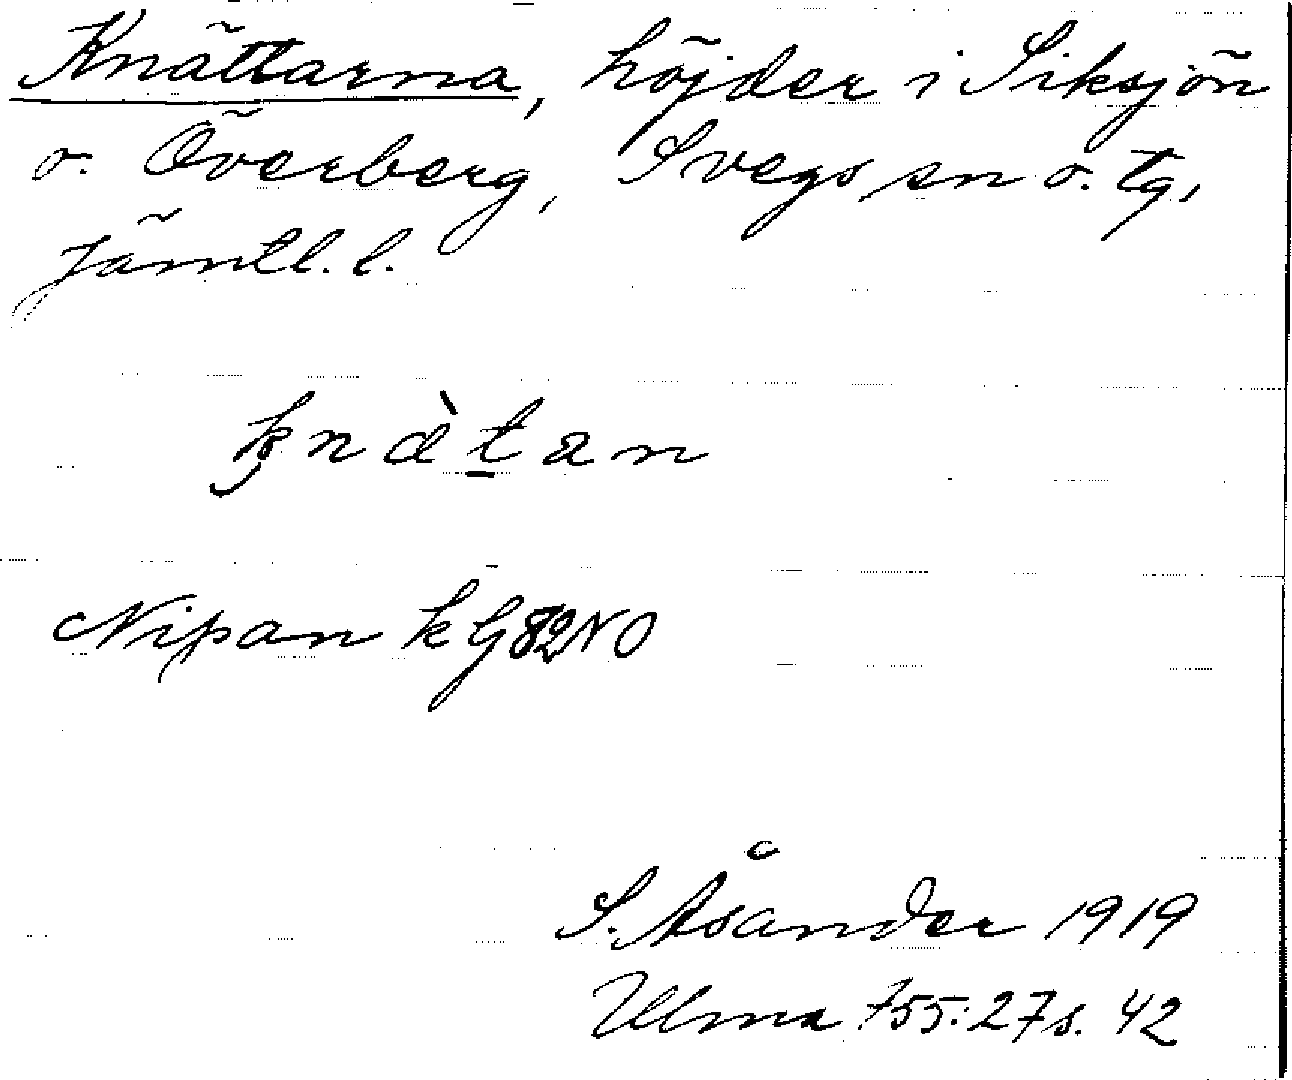 Knättarna, höjder i Siksjön
o. Överberg, Svegs sn o. tg,
Jämtl. l.
knàtan
Nipan k G82NO
S. Åsander 1919
Ulma 755:27 s. 42